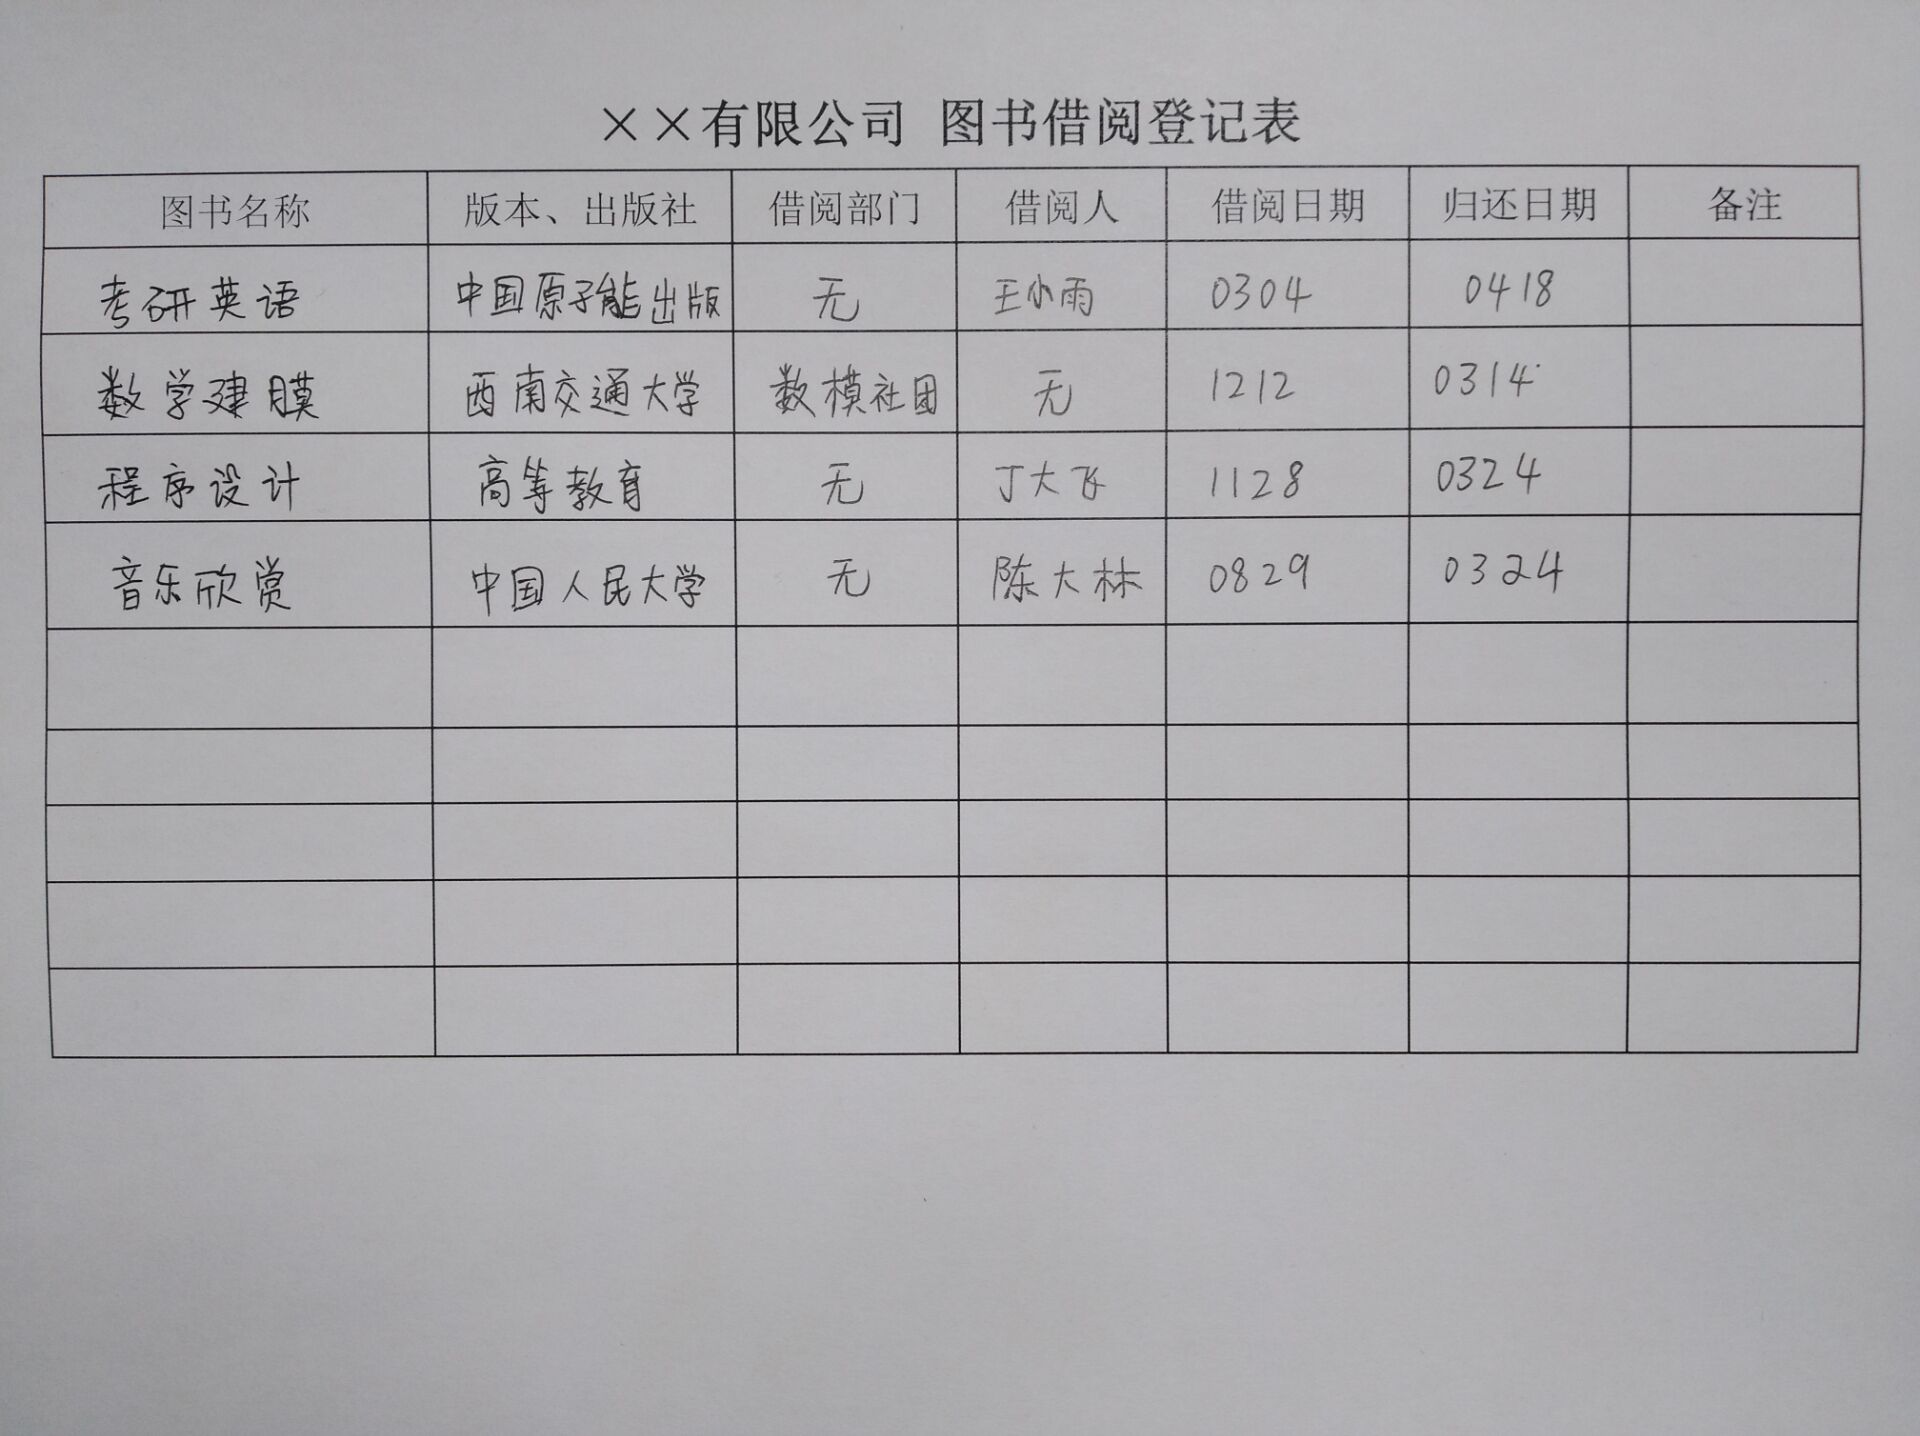 ××有限公司 图书借阅登记表
图书名称 版本、出版社 借阅部门 借阅人 借阅日期 归还日期 备注
考研英语 中国原子能出版 无 王小雨 0304 0418
数学建膜 西南交通大学 数模社团 无 1212 0314
程序设计 高等教育 无 丁大飞 1128 0324
音乐欣赏 中国人民大学 无 陈大林 0829 0324